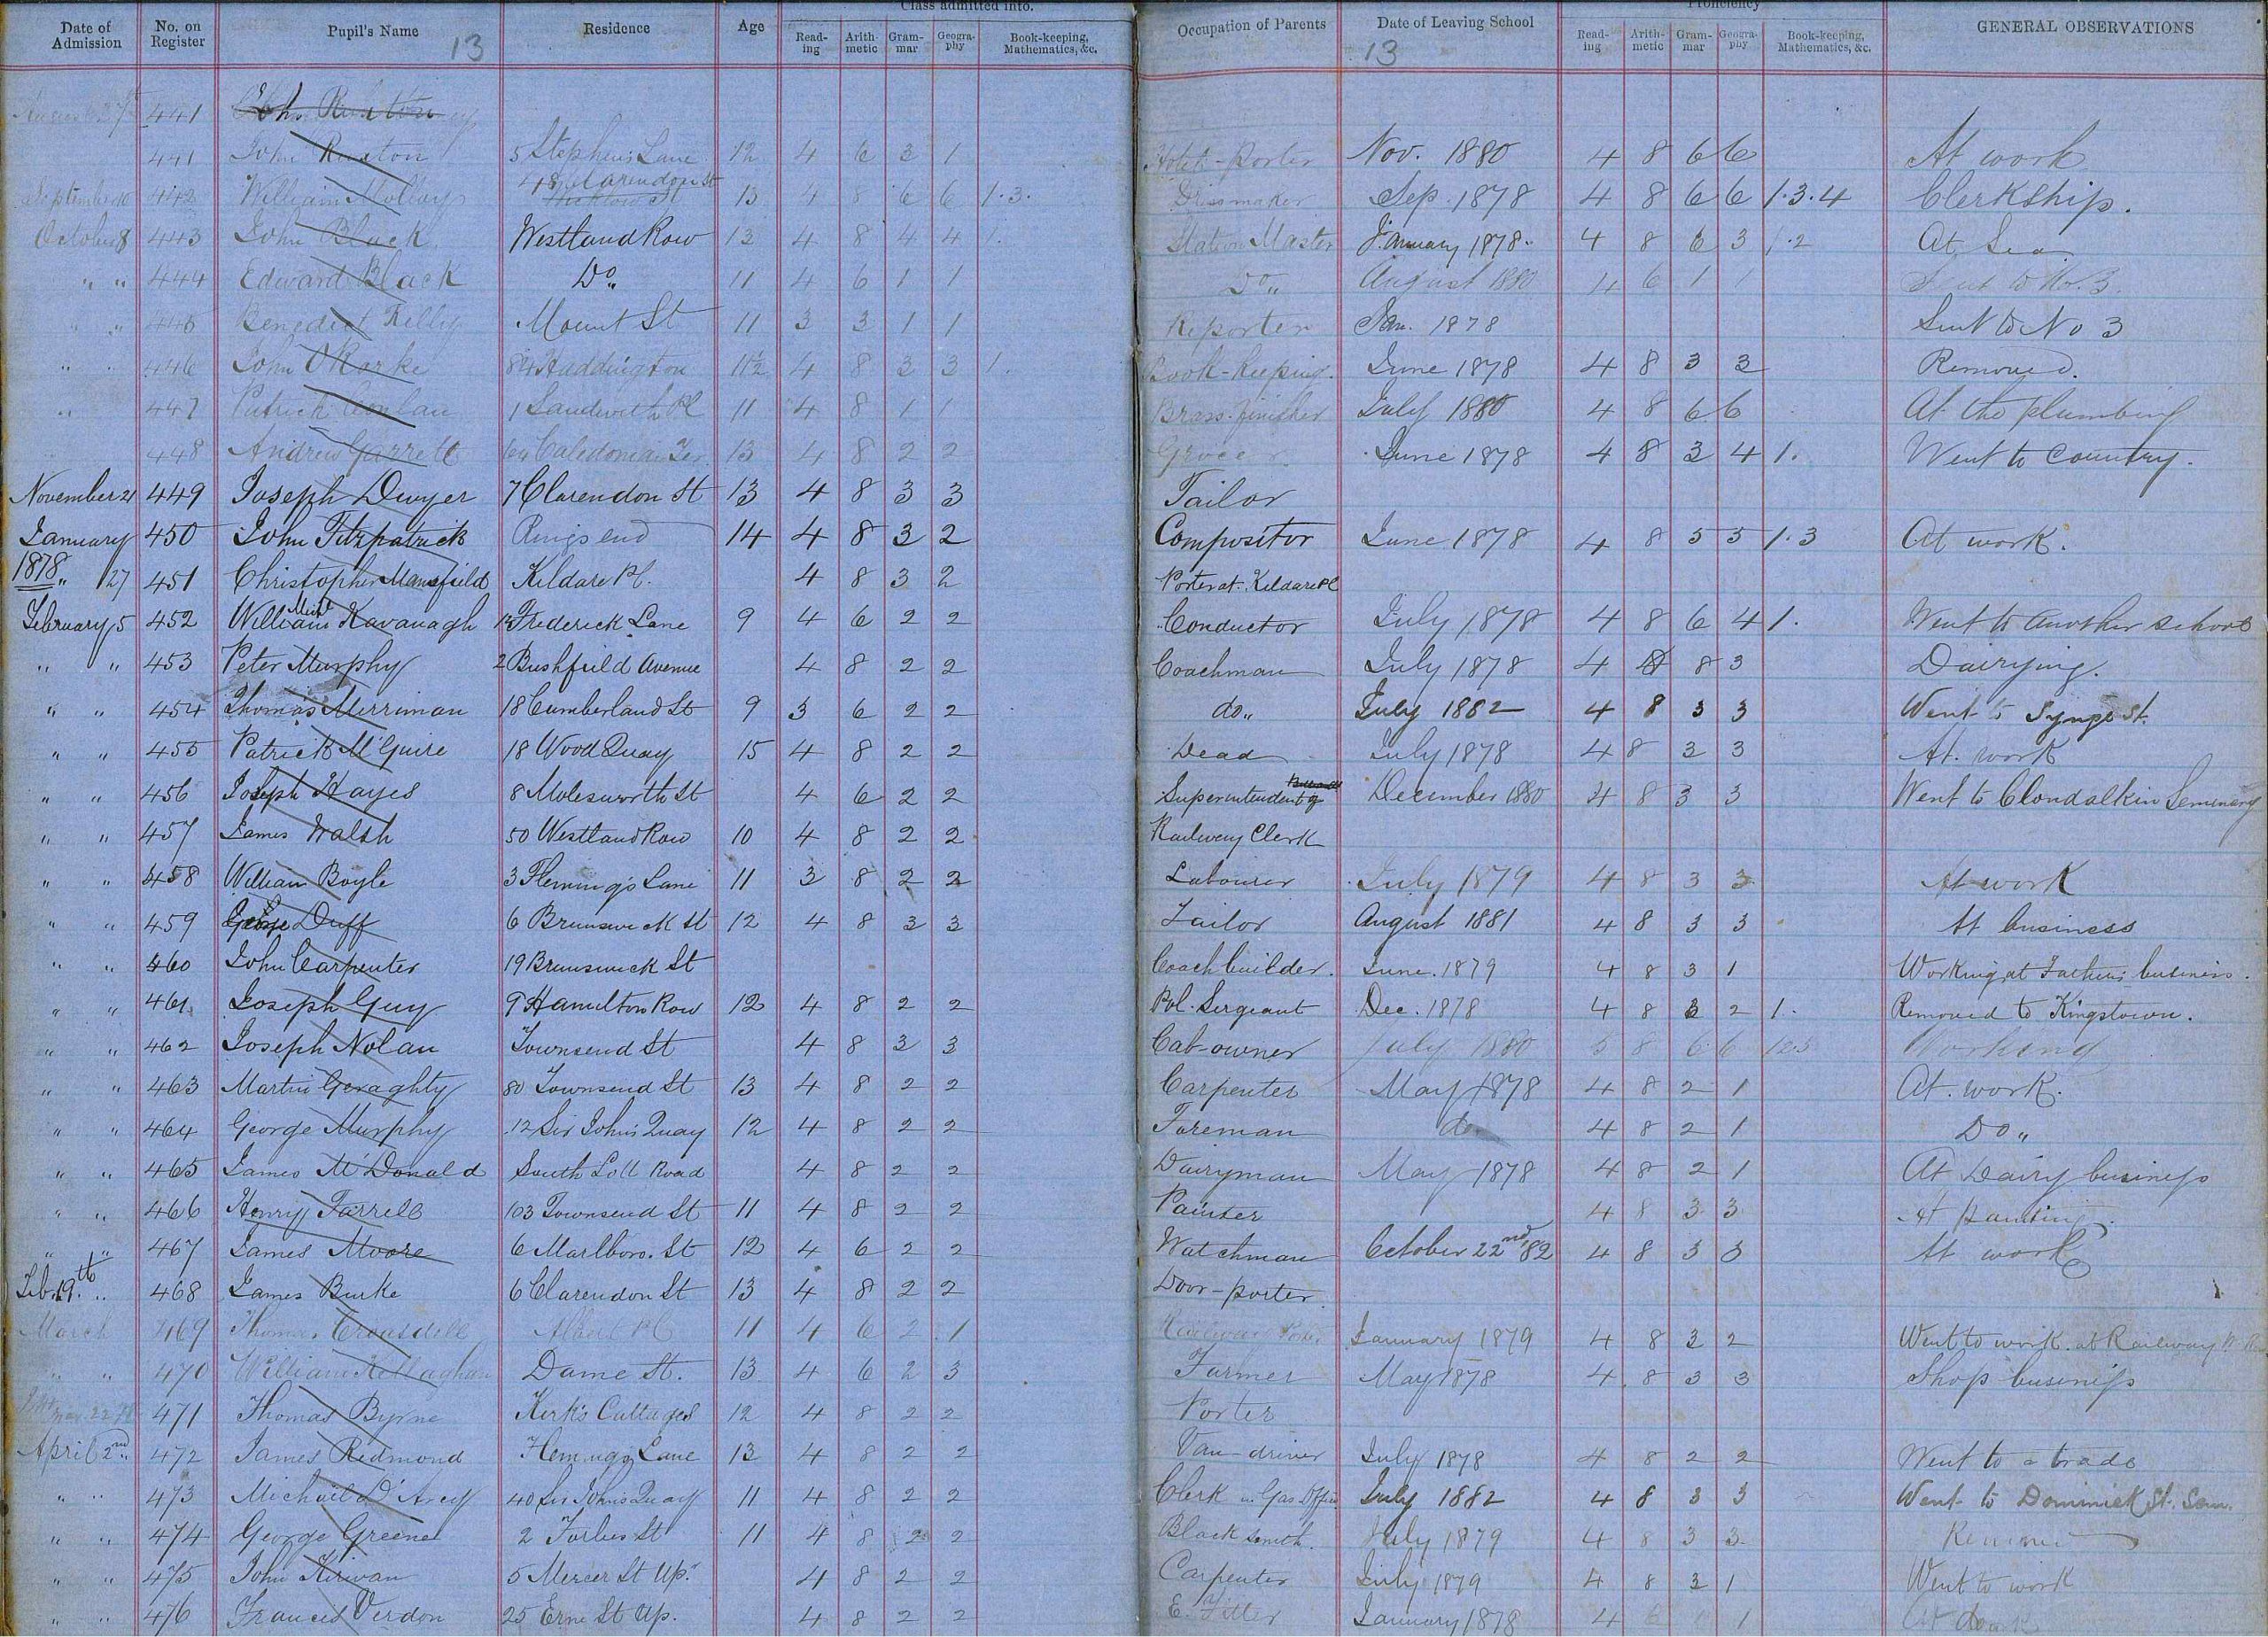 Class admitted into.
Proficiency
Date of Admission No. on Register Pupil's Name Residence Age Read-ing Arith-metic Gram-mar Geogra-phy Book-keeping, Mathematics, &c. Occupation of Parents Date of Leaving School Read-ing Arith-metic Gram-mar Geogra-phy Book-keeping, Mathematics, &c. GENERAL OBSERVATIONS
13 13
441 John
441 John 5 Stephen's Lane 12 4 6 3 1 Hotel-porter Nov. 1880 4 8 6 6 At work
September 10 442 William Molloy 48 Clarendon St 13 4 8 6 6 1.3. Dressmaker Sep. 1878 4 8 6 6 1.3.4 Clerkship.
October 8 443 John Black Westland Row 13 4 8 4 4 1. Station Master January 1878. 4 8 6 3 1.2 At Sea
" " 444 Edward Black Do. 11 4 6 1 1 Do. August 1880 4 6 1 1 Sent to No. 3.
" " 445 Benedict Kelly Mount St 11 3 3 1 1 Reporter Jan. 1878 Sent to No 3
" " 446 John O'Rorke 84 Haddington 11½ 4 8 3 3 1. Book-keeping. June 1878 4 8 3 3 Removed.
" 447 Patrick Conlan 1 Sandwith Pl 11 4 8 1 1 Brass-finisher July 1880 4 8 6 6 At the plumbing
448 Andrew Garrett 64 Caledonian Ter 13 4 8 2 2 Grocer June 1878 4 8 3 4 1. Went to Country.
November 21 449 Joseph Dwyer 7 Clarendon St 13 4 8 3 3 Tailor
January 450 John Fitzpatrick Ringsend 14 4 8 3 2 Compositor June 1878 4 8 5 5 1.3 At work.
1878 " 27 451 Christopher Mansfield Kildare Pl. 4 8 3 2 Porter at Kildare Pl
February 5 452 William Kavanagh Frederick Lane 9 4 6 2 2 Conductor July 1878 4 8 6 4 1. Went to another school
" " 453 Peter Murphy 2 Bushfield Avenue 4 8 2 2 Coachman July 1878 4 8 3 Dairying.
" " 454 Thomas Merriman 18 Cumberland St 9 3 6 2 2 do. July 1882 4 8 3 3 Went to Synge St.
" " 455 Patrick McGuire 18 Wood Quay 15 4 8 2 2 Dead July 1878 4 8 3 3 At work
" " 456 Joseph Hayes 8 Molesworth St 4 6 2 2 Superintendent of December 1880 4 8 3 3 Went to Clondalkin Seminary
" " 457 James Walsh 50 Westland Row 10 4 8 2 2 Railway Clerk
" " 458 William Boyle 3 Fleming's Lane 11 3 8 2 2 Labourer July 1879 4 8 3 3 At work
" " 459 George Duff 6 Brunswick St 12 4 8 3 3 Tailor August 1881 4 8 3 3 At business
" " 460 John Carpenter 19 Brunswick St Coachbuilder. June. 1879 4 8 3 1 Working at Father's business.
" " 461 Joseph Guy 9 Hamilton Row 12 4 8 2 2 Pol. Sergeant Dec. 1878 4 8 3 2 1. Removed to Kingstown.
" " 462 Joseph Nolan Townsend St 4 8 3 3 Cab-owner July 1880 5 8 6 6 123 Working
" " 463 Martin Geraghty 80 Townsend St 13 4 8 2 2 Carpenter May 1878 4 8 2 1 At work.
" " 464 George Murphy 12 Sir John's Quay 12 4 8 2 2 Foreman do 4 8 2 1 Do.
" " 465 James McDonald South Lott Road 4 8 2 2 Dairyman May 1878 4 8 2 1 At Dairy business
" " 466 Henry Farrell 103 Townsend St 11 4 8 2 2 Painter 4 8 3 3 At painting.
" " 467 James Moore 6 Marlboro. St 12 4 6 2 2 Watchman October 22nd 82 4 8 3 3 At work
Feb. 19th " 468 James Burke 6 Clarendon St 13 4 8 2 2 Door-porter
March 469 Thomas Crousdell Albert Pl 11 4 6 2 1 Railway Porter January 1879 4 8 3 2 Went to work at Railway
" " 470 William Kellaghan Dame St. 13 4 6 2 3 Farmer May 1878 4 8 3 3 Shop business
471 Thomas Byrne Kirk's Cottages 12 4 8 2 2 Porter
April 2nd 472 James Redmond Fleming's Lane 13 4 8 2 2 Van-driver July 1878 4 8 2 2 Went to a trade
" " 473 Michael D'Arcy 40 Sir John's Quay 11 4 8 2 2 Clerk in Gas Office July 1882 4 8 3 3 Went to Dominick St. Sem.
" " 474 George Greene 2 Forbes St 11 4 8 2 2 Blacksmith. July 1879 4 8 3 3
" " 475 John Kirwan 5 Mercer St Up. 4 8 2 2 Carpenter July 1879 4 8 3 1 Went to work
" " 476 Francis Verdon 25 Erne St Up. 4 8 2 2 E. Fitter January 1878 4 6 1 At